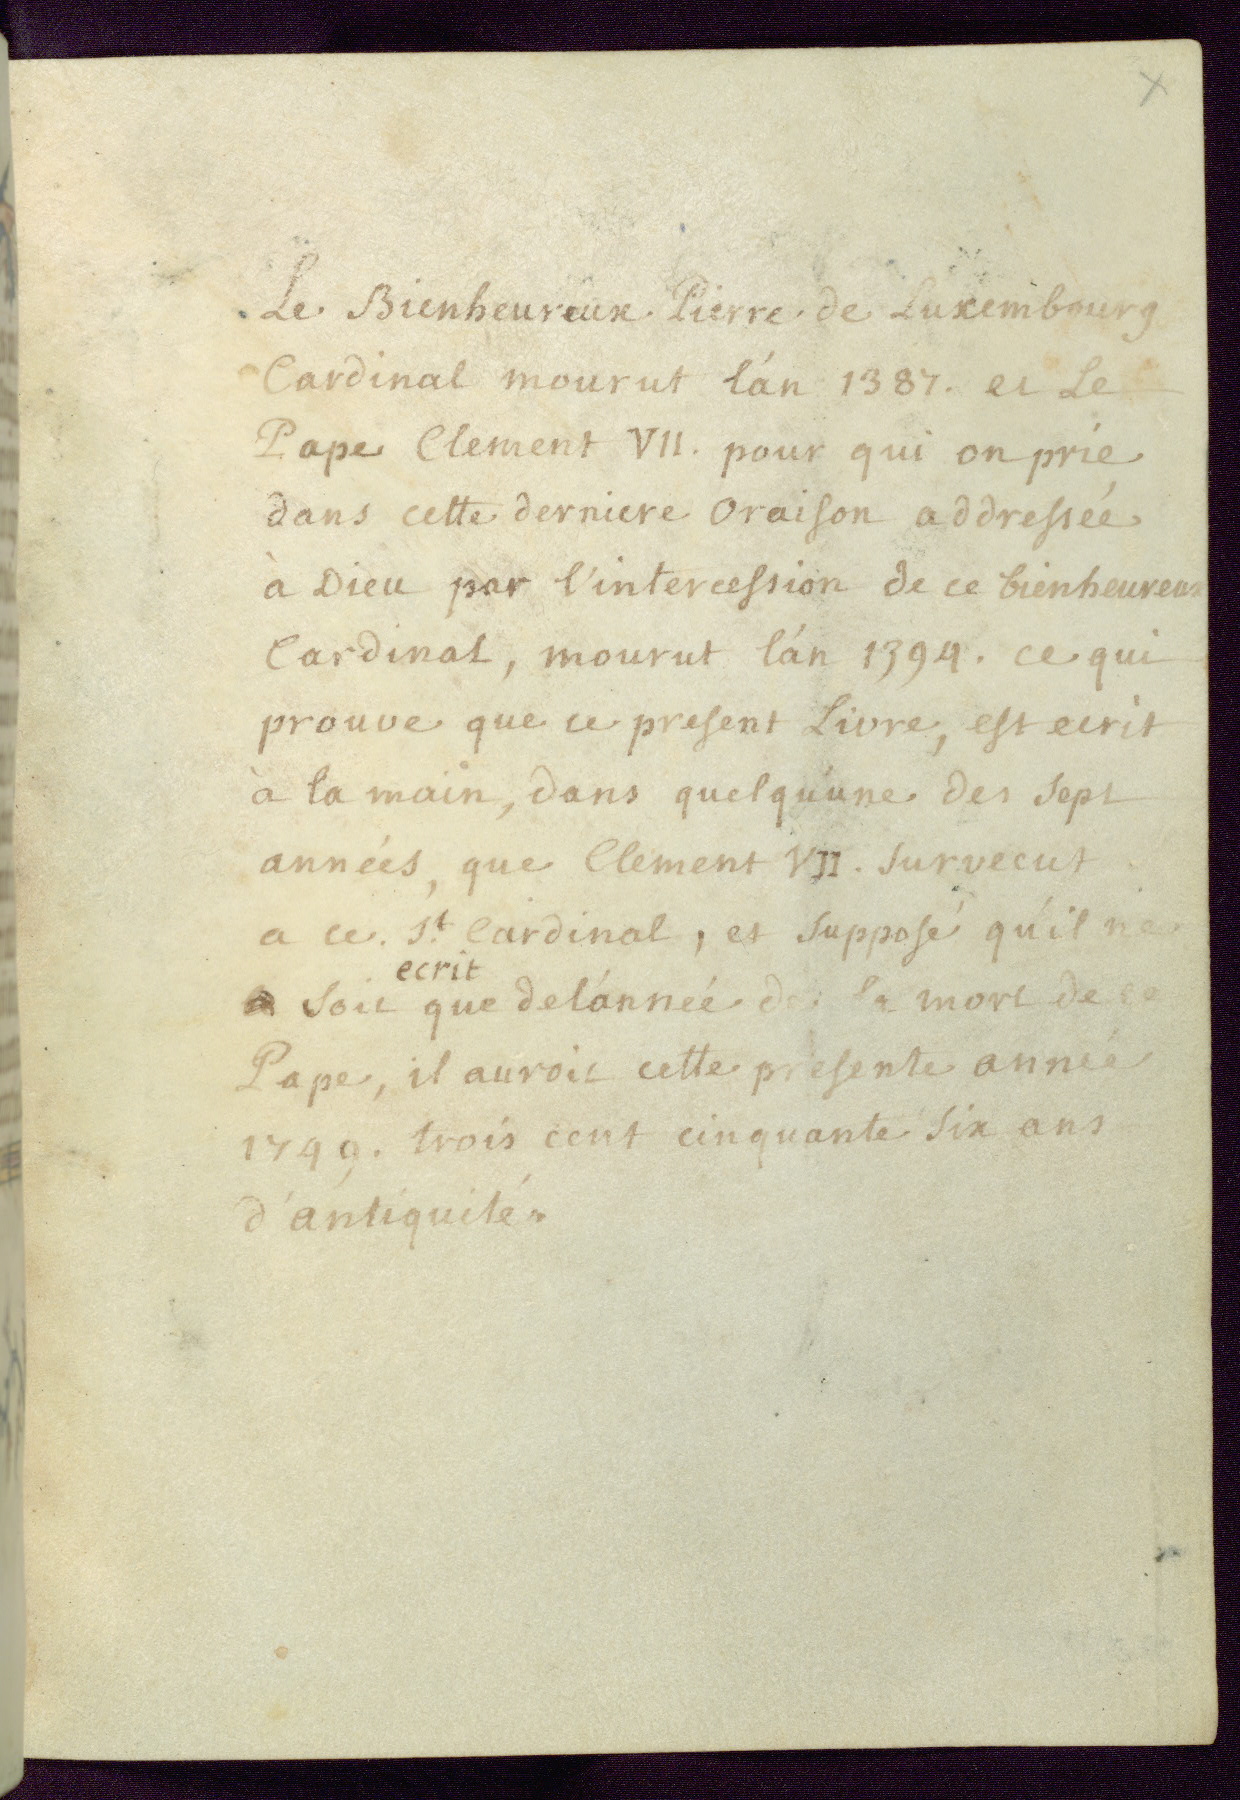 Le Bienheureux Pierre de Luxembourg
Cardinal mourut l'án 1387. et Le
Pape Clement VII. pour qui on prie
dans cette derniere Oraison addressée
à Dieu par l'intercession de ce bienheureux
Cardinal, mourut l'án 1394. ce qui
prouve que ce present Livre, est ecrit
à la main, dans quelqu'une des sept
années, que Clement VII. survecut
a ce St. Cardinal, et supposé qu'il ne
soit ecrit que de l'année de la mort de ce
Pape, il auroit cette presente année
1749. trois cent cinquante six ans
d'antiquité.